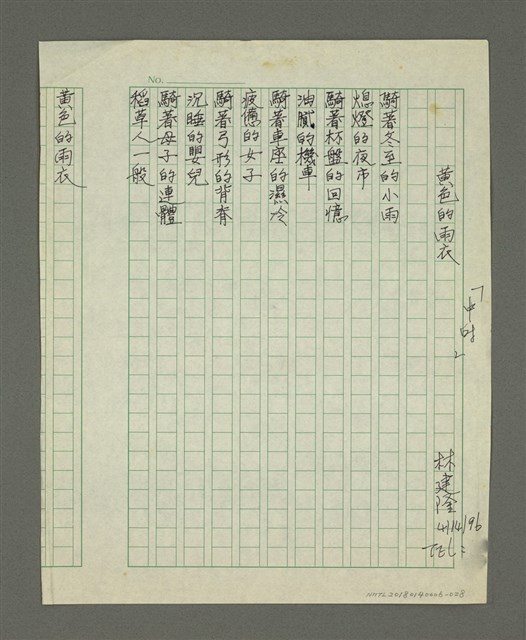 黃色的雨衣
「中时」
林建隆
4/14/96
TEL:
騎著冬至的小雨
熄燈的夜市
騎著杯盤的回憶
油膩的機車
騎著車座的濕冷
疲憊的女子
騎著弓形的背脊
沉睡的嬰兒
騎著母子的連體
稻草人一般
黃色的雨衣
No.
NMTL20180140006-028